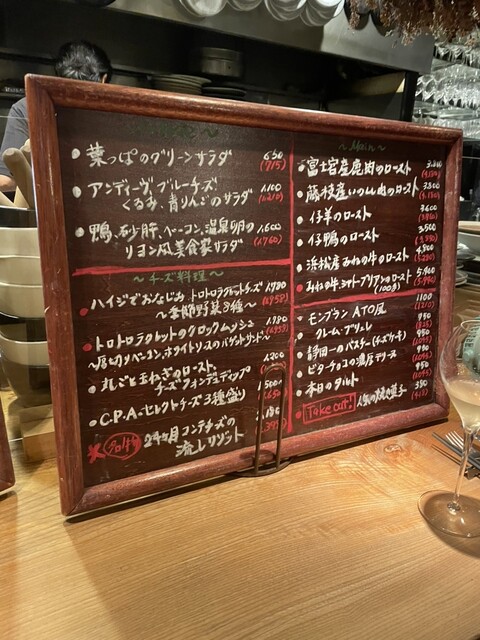 葉っぱのグリーンサラダ 650 (715)
アンディーヴ、ブルーチーズ 1,100
くるみ、青りんごのサラダ (1,210)
鴨、砂肝、ベーコン、温泉卵の 1,600
リヨン風美食家サラダ (1,760)
~チーズ料理~
ハイジでおなじみ トロトロラクレットチーズ 1,780
~季節野菜8種~ (1,958)
トロトロラクレットのクロックムッシュ
~厚切りベーコン、ホワイトソースのバゲットサンド~
丸ごと玉ねぎのロースト、 1,200
チーズフォンデュディップ
C.P.A.セレクトチーズ3種盛り
24ヶ月コンテチーズの
流しリゾット
~Main~
富士宮産鹿肉のロースト
藤枝産いのしし肉のロースト 3,800
仔羊のロースト 3,600
仔鴨のロースト 3,500
浜松産みねの牛のロースト 4,800
みねの牛シャトーブリアンのロースト 5,400
(100g)
モンブラン ATO風 1,100 (1,210)
クレームブリュレ 950
静岡一のバスチー(チーズケーキ) 950
ビターチョコの濃厚テリーヌ 950
本日のタルト 950
Take out! 人気の焼き菓子 380 (418)